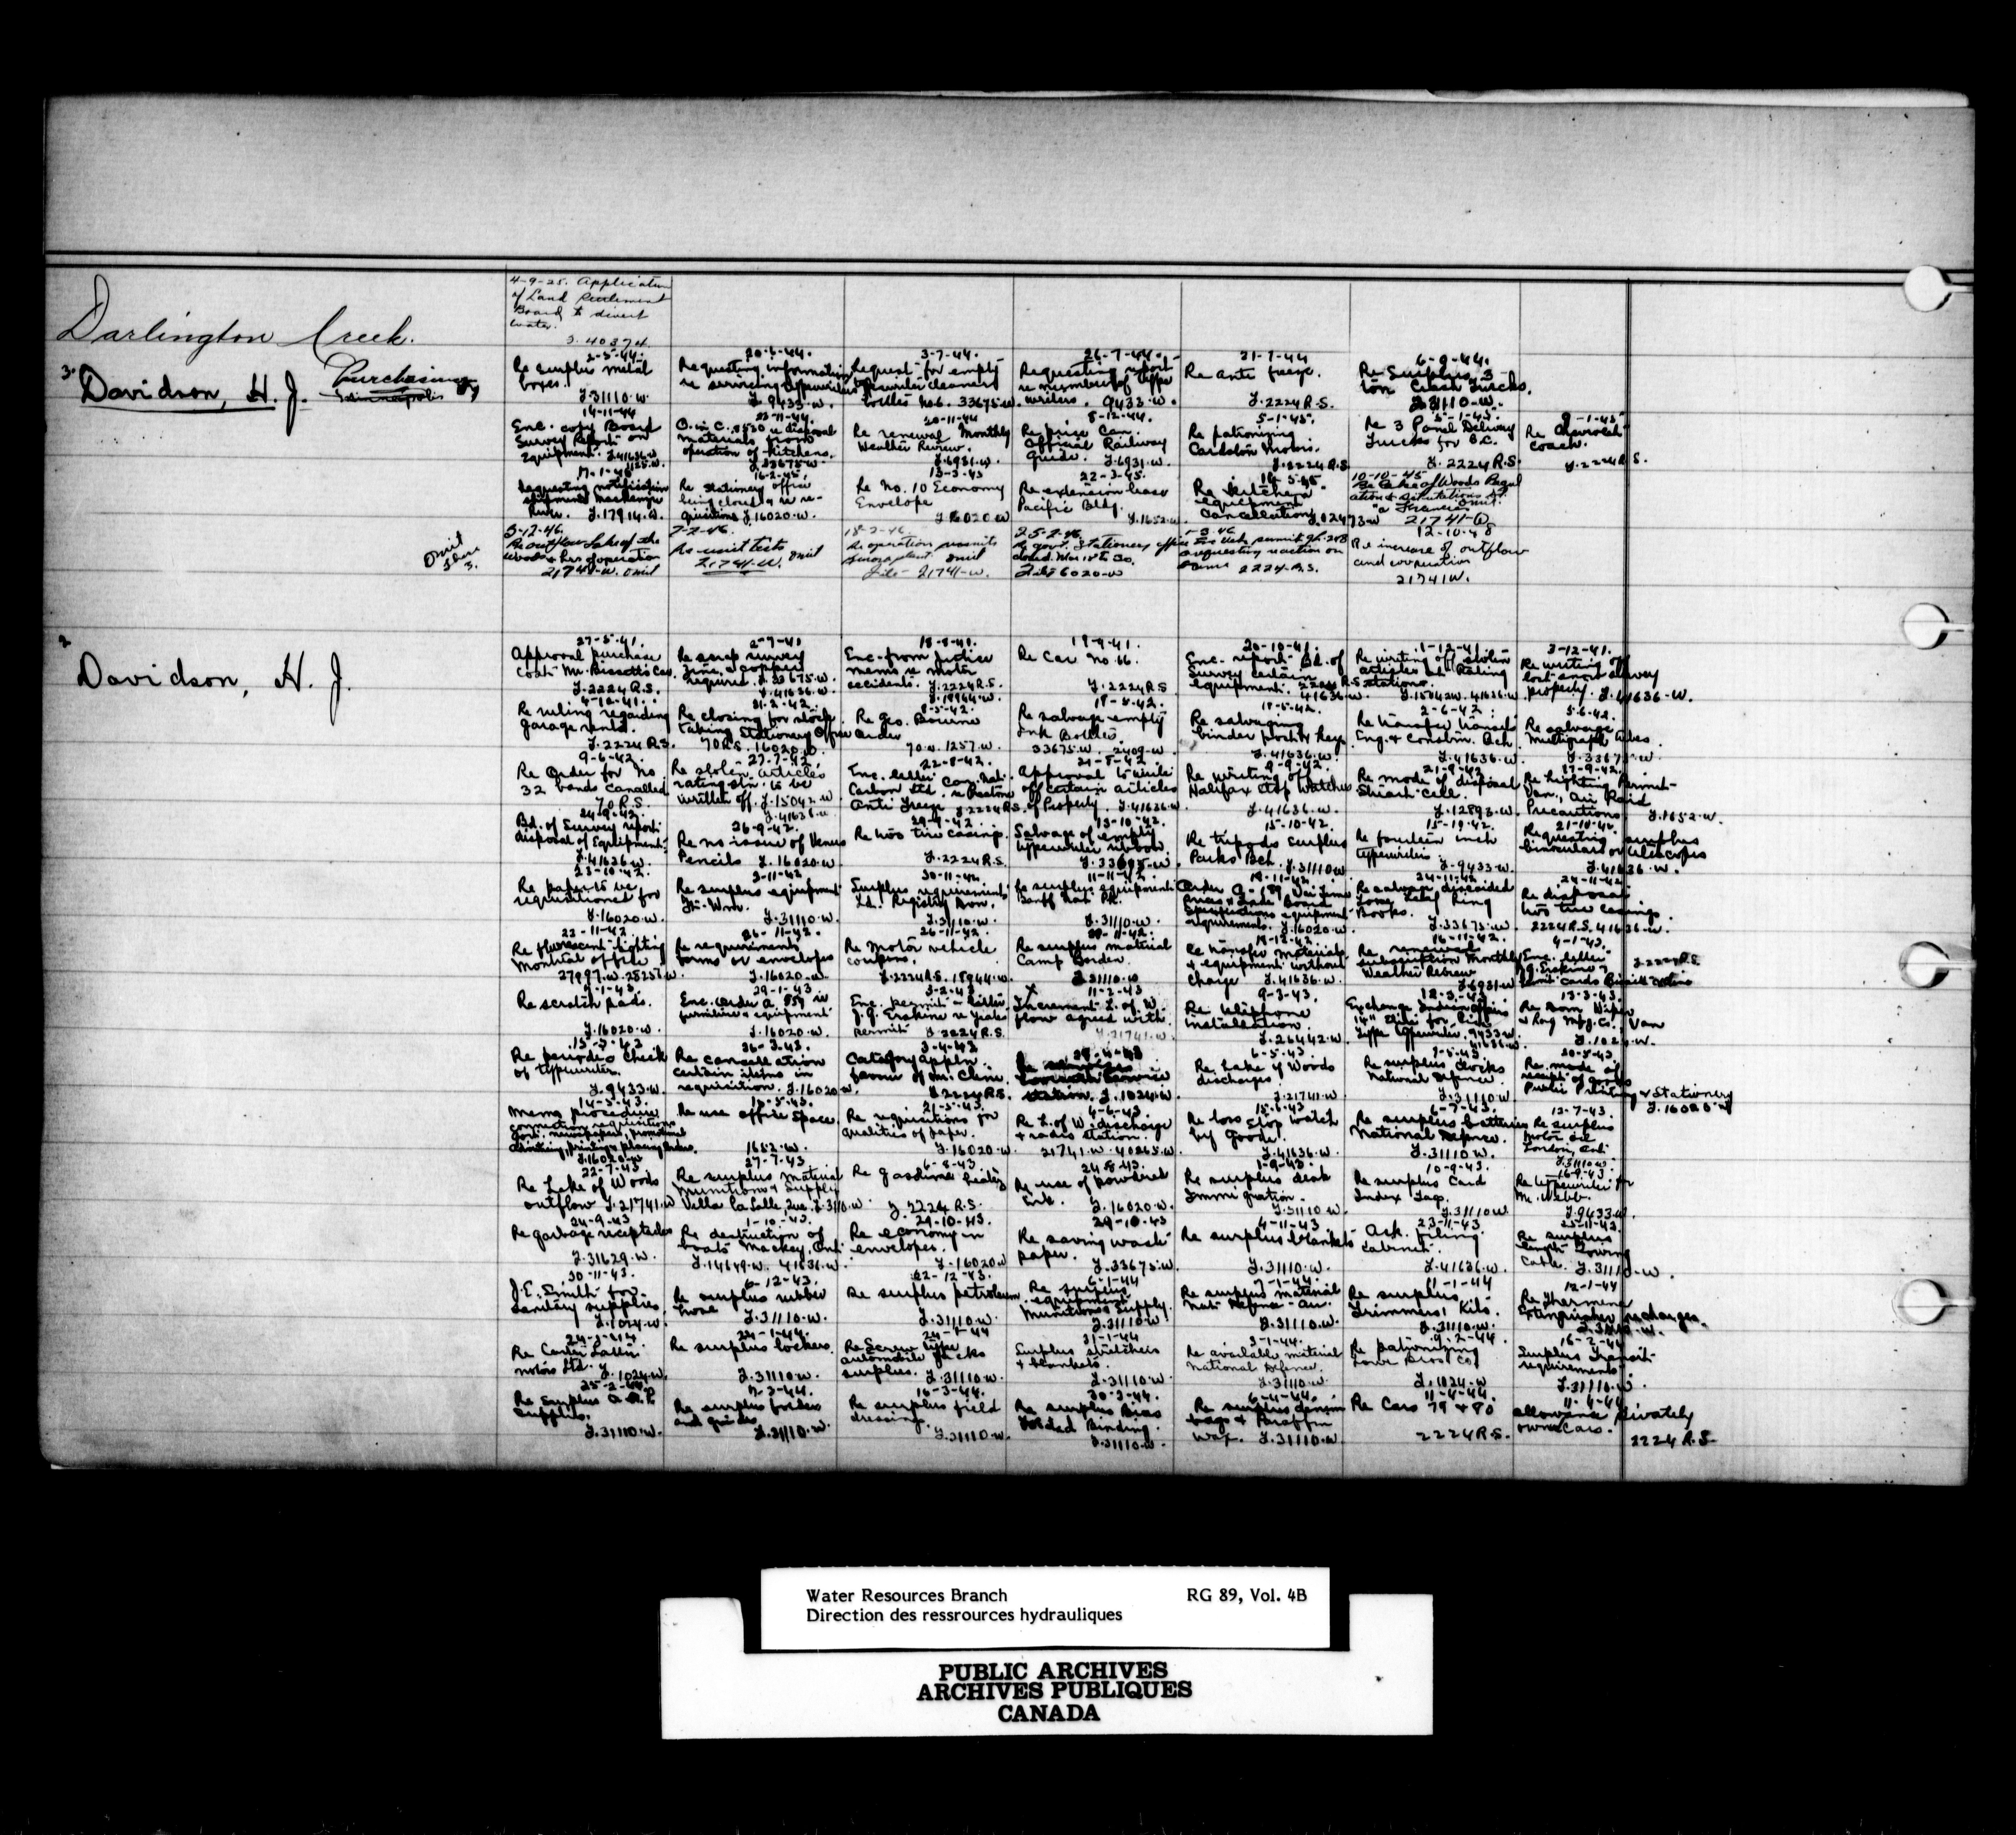 4-9-25. Application
of Land Settlement
Board to divert
water.
Darlington Creek.
3. 40374
3.
Davidson, H. J.
Purchasing
2-5-44.
Re surplus metal
boxes.
J.31110.W.
20-6-44.
Requesting information
re servicing typewriters
J. 9433.W.
3-7-44.
Request for empty
typewriter cleaners
bottles No6. 33675.W.
26-7-44.
Requesting report
re number of type
writers. 9433.W.
21-7-44
Re anti freeze.
J.2224 R.S.
6-9-44.
Re Surplus 3
ton Crash Trucks.
J.31110.W.
14-11-44
Enc. copy Board
Survey Report on
Equipment. J.41636.W
22-11-44.
O. in C. 8530 re disposal
materials from
operation of kitchens.
J.33675.W.
20-11-44
Re renewal Monthly
Weather Review.
J.6931.W.
8-12-44.
Re price Can.
Official Railway
Guide. J.6931.W.
5-1-45.
Re patronizing
Cardston Motors.
J.2224 R.S.
5-1-45.
Re 3 Panel Delivery
Trucks for B.C.
J. 2224 R.S.
9-1-45
Re Chevrolet
Coach.
J.2224 R.S.
17-1-45
Requesting notification
shipment Mackenzie
River. J.17914.W.
16-2-45.
Re Stationery office
being closed & re re-
quisitions J.16020.W.
13-3-45
Re No. 10 Economy
Envelope
J.16020.W
22-3-45.
Re extension lease
Pacific Bldg.
J.1652.W
Re kitchen
equipment
Cancellation
10-10-45
Re Lake of Woods Regul
21741-W
Omit
Re outflow Lake of the
Woods & hrs of operation
21741-W. omit
7-2-46.
Re unit tests
21741-W. omit
18-2-46
Re operation permits
omit
File - 21741-W.
25-2-46
Re Govt. Stationery office
closed. Mar 1st
File 6020-W
requesting reaction on
same 2224-R.S.
12-10-48
Re increase of outflow
and cooperation
21741W.
2
Davidson, H. J.
27-5-41.
Approval purchase
Coat Mr. Bissett's Car.
J.2224 R.S.
2-7-41
Re scrap survey
Zinc & copper
required. J.33675.W.
J.41636.W.
18-8-41.
Enc. from Justice
memo re motor
accidents. J.2224 R.S.
J.18944.W.
19-9-41.
Re Car No. 16.
J.2224 R.S
20-10-41.
Enc. report Bd. of
Survey certain
equipment. 2224 R.S.
41636.W.
1-12-41
Re writing off stolen
articles at Rating
stations.
J.15042W. 41636.W
3-12-41.
Re writing off
lost snow survey
property. J.41636-W.
4-12-41.
Re ruling regarding
garage rents.
J.2224 R.S.
21-2-42.
Re closing for stock
taking Stationery Office
70 R.S. 16020.W.
8-5-42.
Re Geo. Bourne
order
70.W. 1257.W.
18-5-42.
Re salvage empty
Ink Bottles.
33675.W. 2409-W.
18-5-42.
Re salvaging
binder posts & keys
J.41636.W.
2-6-42.
Re transfer transit
Eng. & Constrn. Bch.
J.41636.W.
5-6-42.
Re salvage
Multigraph
J.33675.W
9-6-42.
Re Order for No.
32 bands Cancelled
70 R.S.
27-7-42.
Re stolen articles
rating stn. to be
written off. J.15042.W
J.41636.W
22-8-42.
Enc. letter Can. Nat.
Carbon Ltd. re Prestone
Anti Freeze J.2224 R.S.
21-8-42
Approval to write
off certain articles
of Property. J.41636.W
9-9-42.
Re writing off
Halifax Stop Watches
J.41636.W.
21-9-42
Re mode of disposal
J.12893.W.
17-9-42.
Re lighting Permit
Van., Air Raid
Precautions. J.1652.W.
24-9-42.
Bd. of Survey report
disposal of Equipment.
J.41636.W.
26-9-42.
Re no issue of Venus
Pencils J.16020.W.
29-9-42.
Re two tire casings.
J.2224 R.S.
13-10-42.
Salvage of empty
typewriter ribbon
J.33675.W
15-10-42.
Re tripods surplus
Parks Bch. J.31110W
15-10-42.
Re fourteen inch
typewriters.
J.9433.W
21-10-42
Requesting surplus
binoculars or telescopes
J.41636.W.
23-10-42.
Re paper to be
requisitioned for
J.16020.W.
3-11-42
Re surplus equipment
Ft. Wm.
J.31110.W.
30-11-42
Surplus requirements
Ld. Registry Dom.
J.31110.W.
11-11-42
Re surplus equipment
Banff Nat. Pk.
J.31110.W.
18-11-42.
equipment
requirements. J.16020.W
24-11-42
Re salvage discarded
Loose Leaf Ring
Books.
J.33675.W
24-11-42
Re disposal
two tire casings.
2224 R.S. 41636-W.
22-11-42.
Re fluorescent lighting
Montreal office
27997.W. 28256.W.
26-11-42.
Re requirements
forms or envelopes
J.16020.W.
26-11-42.
Re Motor vehicle
coupons.
J.2224 R.S. 18944.W.
Re surplus material
Camp Borden.
J.31110.W
14-12-42.
Re transfer materials
& equipment without
charge J.41636.W.
16-11-42.
Re renewal
subscription Monthly
Weather Review
J.6931.W
4-1-43.
Enc. letter
J.G. Erskine
J.2224 R.S
Re scratch pads.
J.16020.W
29-1-43
Enc. order a 859 re
furniture & equipment
J.16020.W.
3-2-43
Enc. permit & letter
J.G. Erskine
permit J.2224 R.S.
11-2-43
Increment L. of W.
flow agreed with.
J.21741.W
9-3-43.
Re telephone
installation.
J.26442.W
12-3-43
J.1024.W.
15-3-43
Re periodic check
of typewriter.
J.9433.W
26-3-43.
Re cancellation
certain items in
requisition. J.16020.W.
3-4-43
Category appln.
favour of Mr. Cline.
J.2224 R.S.
station. J.1024.W
6-5-43
Re Lake of Woods
discharges.
J.21741.W
7-5-43
Re surplus clocks
National Defence.
J.31110.W
20-5-43
Re mode of
receipt of goods
Public Printing & Stationery
J.16020.W
14-5-43.
Memo procedure
J.16020.W
15-5-43.
Re use office space
1652.W.
21-5-43
Re requisitions for
qualities of paper.
J.16020.W
4-6-43
Re L. of W. discharge
& radio station.
21741.W. 40265.W
15-6-43
Re loss Stop Watch
by Goode.
J.41636.W.
6-7-43.
Re surplus batteries
National Defence.
J.31110.W.
12-7-43
Re surplus
Motor
London, Ont.
J.31110.W
22-7-43
Re Lake of Woods
outflow J.21741.W
27-7-43
Re surplus material
Munitions & Supply
Ville La Salle, Que. J.31110.W
6-8-43.
Re gasoline
J.2224 R.S.
24-8-43.
Re use of powdered
ink.
J.16020.W.
1-9-43.
Re surplus desk
Immigration.
J.31110.W
10-9-43.
Re surplus Card
Index
J.31110W
16-9-43
Re typewriter for
Mr. Webb.
J.9433.W
24-9-43
Re garbage receptacles
J.31629.W.
1-10-43.
Re destruction of
boats Mackey, Ont
J.14649.W. 41636.W.
29-10-43.
Re economy in
envelopes.
J.16020.W
29-10-43
Re saving waste
paper.
J.33675.W
4-11-43
Re surplus blankets
J.31110.W.
23-11-43
Ask. filing
cabinet.
J.41636.W.
Re surplus
length Towing
Cable. J.31110-W.
30-11-43.
J.E. Smith for
sanitary supplies.
J.1024.W.
6-12-43.
Re surplus rubber
hose
J.31110.W.
22-12-43.
Re surplus petroleum
J.31110.W.
6-1-44
Re surplus
equipment
Munitions & Supply.
J.31110.W
7-1-44.
Re surplus material
Nat. Defence - Air.
J.31110.W.
11-1-44
Re surplus
Trimmers' Kits.
J.31110.W.
12-1-44
Extinguisher recharges.
24-1-44.
Re Carter
Motors Ltd. J.1024.W
24-1-44.
Re surplus lockers.
J.31110.W
24-1-44
Re Screw type
automobile jacks
surplus. J.31110.W.
31-1-44
Surplus stretchers
& blankets.
J.31110.W
Re available material
National Defence.
J.31110.W
9-2-44.
Re patronizing
Lowe Bros Co
J.1024.W
16-2-44
Surplus Transit
requirements
J.31110.W.
25-2-44
Re Surplus A.R.P.
supplies.
J.31110.W.
7-3-44.
Re surplus folders
and guides
J.31110.W.
16-3-44.
Re surplus field
dressing.
J.31110.W.
30-3-44.
Re surplus Bias
Folded Binding.
J.31110.W.
6-4-44.
Re surplus denim
bags & Paraffin
Wax. J.31110.W
11-4-44.
Re Cars 79 & 80
2224 R.S.
11-4-44
allowance privately
owned Cars.
2224 R.S.
Water Resources Branch RG 89, Vol. 4B
Direction des ressrources hydrauliques
PUBLIC ARCHIVES
ARCHIVES PUBLIQUES
CANADA